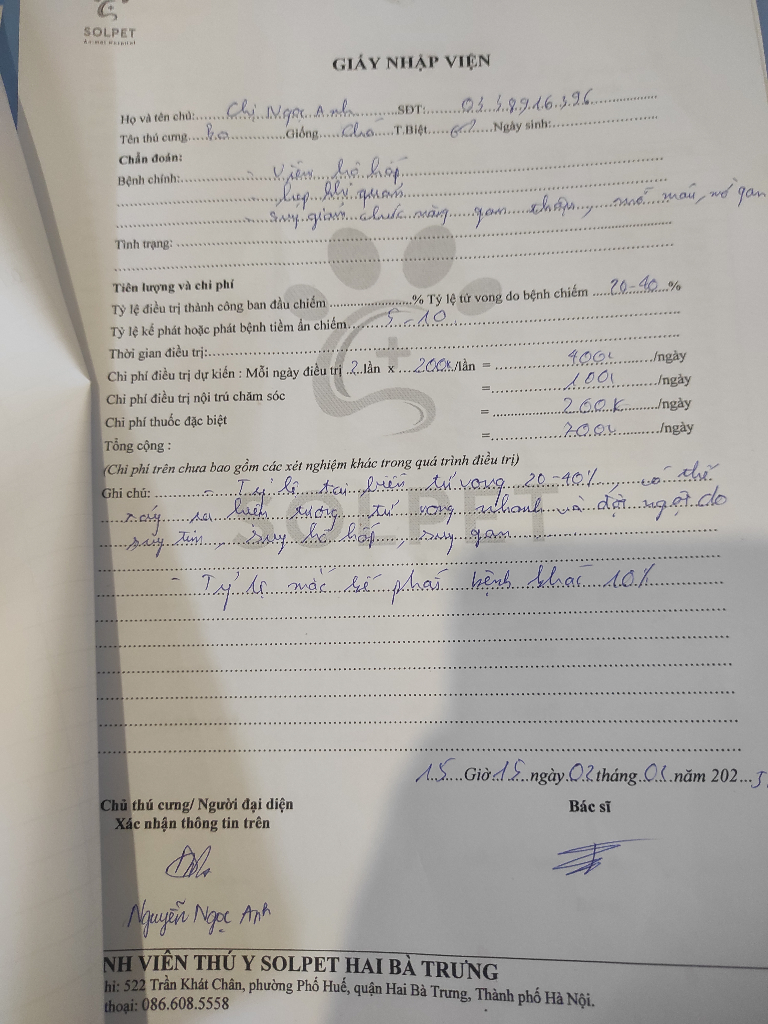 SOLPET
GIẤY NHẬP VIỆN
Họ và tên chủ: Chị Ngọc Anh SĐT: 0338916396
Tên thú cưng Giống Chó T.Biệt Ngày sinh:
Chẩn đoán:
Bệnh chính: - Viêm hô hấp
hẹp khí quản
suy giảm chức năng gan thận, mỡ máu, mỡ gan
Tình trạng:
Tiên lượng và chi phí
Tỷ lệ điều trị thành công ban đầu chiếm % Tỷ lệ tử vong do bệnh chiếm 20-40 %
Tỷ lệ kế phát hoặc phát bệnh tiềm ẩn chiếm 5-10
Thời gian điều trị:
Chi phí điều trị dự kiến : Mỗi ngày điều trị 2 lần x 200k/lần = 400k /ngày
Chi phí điều trị nội trú chăm sóc = 100k /ngày
Chi phí thuốc đặc biệt = 200k /ngày
Tổng cộng : = 700k /ngày
(Chi phí trên chưa bao gồm các xét nghiệm khác trong quá trình điều trị)
Ghi chú: - Tỷ lệ tai biến tử vong 20-40%, có thể
xảy ra hiện tượng tử vong nhanh và đột ngột do
suy tim, suy hô hấp, suy gan
- Tỷ lệ mắc kế phát bệnh khác 10%
15 Giờ 15 ngày 02 tháng 01 năm 202
Chủ thú cưng/ Người đại diện
Xác nhận thông tin trên
Bác sĩ
Nguyễn Ngọc Anh
NH VIỆN THÚ Y SOLPET HAI BÀ TRƯNG
hỉ: 522 Trần Khát Chân, phường Phố Huế, quận Hai Bà Trưng, Thành phố Hà Nội.
thoại: 086.608.5558